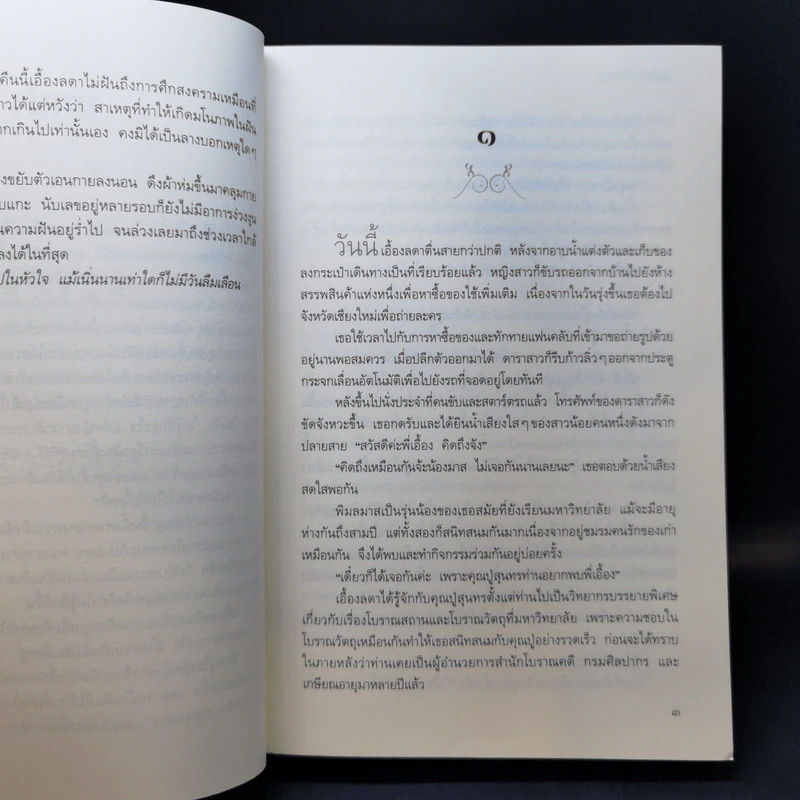 คืนนี้เอื้องลดาไม่ฝันถึงการศึกสงครามเหมือนที่
าวได้แต่หวังว่า สาเหตุที่ทำให้เกิดมโนภาพในฝัน
ากเกินไปเท่านั้นเอง คงมิได้เป็นลางบอกเหตุใดๆ
งขยับตัวเอนกายลงนอน ดึงผ้าห่มขึ้นมาคลุมกาย
บแกะ นับเลขอยู่หลายรอบก็ยังไม่มีอาการง่วงงุน
นความฝันอยู่ร่ำไป จนล่วงเลยมาถึงช่วงเวลาใกล้
ลงได้ในที่สุด
ปในหัวใจ แม้เนิ่นนานเท่าใดก็ไม่มีวันลืมเลือน
๑
วันนี้ เอื้องลดาตื่นสายกว่าปกติ หลังจากอาบน้ำแต่งตัวและเก็บของ
ลงกระเป๋าเดินทางเป็นที่เรียบร้อยแล้ว หญิงสาวก็ขับรถออกจากบ้านไปยังห้าง
สรรพสินค้าแห่งหนึ่งเพื่อหาซื้อของใช้เพิ่มเติม เนื่องจากในวันรุ่งขึ้นเธอต้องไป
จังหวัดเชียงใหม่เพื่อถ่ายละคร
เธอใช้เวลาไปกับการหาซื้อของและทักทายแฟนคลับที่เข้ามาขอถ่ายรูปด้วย
อยู่นานพอสมควร เมื่อปลีกตัวออกมาได้ ดาราสาวก็รีบก้าวลิ่วๆ ออกจากประตู
กระจกเลื่อนอัตโนมัติเพื่อไปยังรถที่จอดอยู่โดยทันที
หลังขึ้นไปนั่งประจำที่คนขับและสตาร์ตรถแล้ว โทรศัพท์ของดาราสาวก็ดัง
ขัดจังหวะขึ้น เธอกดรับและได้ยินน้ำเสียงใสๆ ของสาวน้อยคนหนึ่งดังมาจาก
ปลายสาย “สวัสดีค่ะพี่เอื้อง คิดถึงจัง”
“คิดถึงเหมือนกันจ้ะน้องมาส ไม่เจอกันนานเลยนะ” เธอตอบด้วยน้ำเสียง
สดใสพอกัน
พิมลมาสเป็นรุ่นน้องของเธอสมัยที่ยังเรียนมหาวิทยาลัย แม้จะมีอายุ
ห่างกันถึงสามปี แต่ทั้งสองก็สนิทสนมกันมากเนื่องจากอยู่ชมรมคนรักของเก่า
เหมือนกัน จึงได้พบและทำกิจกรรมร่วมกันอยู่บ่อยครั้ง
“เดี๋ยวก็ได้เจอกันค่ะ เพราะคุณปู่สุนทรท่านอยากพบพี่เอื้อง”
เอื้องลดาได้รู้จักกับคุณปู่สุนทรตั้งแต่ท่านไปเป็นวิทยากรบรรยายพิเศษ
เกี่ยวกับเรื่องโบราณสถานและโบราณวัตถุที่มหาวิทยาลัย เพราะความชอบใน
โบราณวัตถุเหมือนกันทำให้เธอสนิทสนมกับคุณปู่อย่างรวดเร็ว ก่อนจะได้ทราบ
ในภายหลังว่าท่านเคยเป็นผู้อำนวยการสำนักโบราณคดี กรมศิลปากร และ
เกษียณอายุมาหลายปีแล้ว
๓